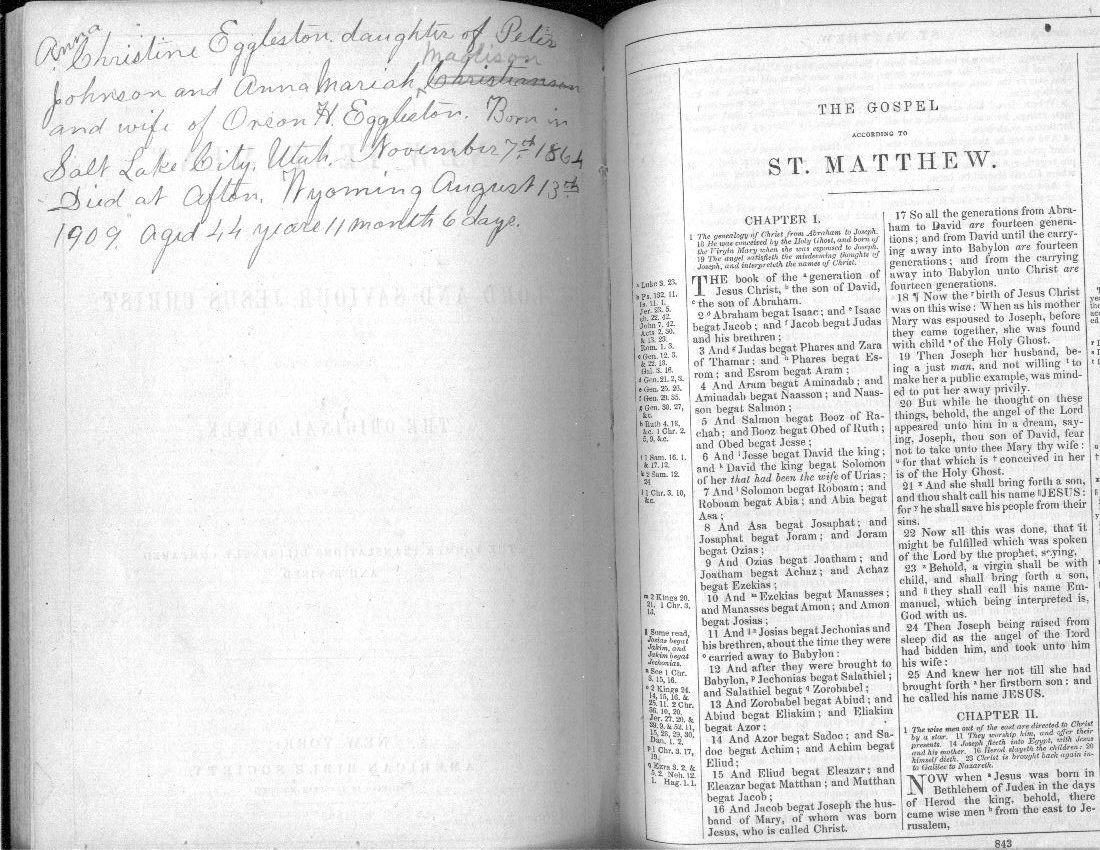 Anna
Christine Eggleston. daughter of Peter
Madison
Johnson and Anna Mariah Christianson
and wife of Orson H. Eggleston. Born in
Salt Lake City, Utah. November 7th 1864
Died at Afton, Wyoming August 13th
1909. aged 44 years 11 month 6 days.
THE GOSPEL
ACCORDING TO
ST. MATTHEW.
CHAPTER I.
1 The genealogy of Christ from Abraham to Joseph.
18 He was conceived by the Holy Ghost, and born of
the Virgin Mary when she was espoused to Joseph.
19 The angel satisfieth the misdeeming thoughts of
Joseph, and interpreteth the names of Christ.
THE book of the a generation of
Jesus Christ, b the son of David,
c the son of Abraham.
2 d Abraham begat Isaac; and e Isaac
begat Jacob; and f Jacob begat Judas
and his brethren;
3 And g Judas begat Phares and Zara
of Thamar; and h Phares begat Es-
rom; and Esrom begat Aram;
4 And Aram begat Aminadab; and
Aminadab begat Naasson; and Naas-
son begat Salmon;
5 And Salmon begat Booz of Ra-
chab; and Booz begat Obed of Ruth;
and Obed begat Jesse;
6 And i Jesse begat David the king;
and k David the king begat Solomon
of her that had been the wife of Urias;
7 And l Solomon begat Roboam; and
Roboam begat Abia; and Abia begat
Asa;
8 And Asa begat Josaphat; and
Josaphat begat Joram; and Joram
begat Ozias;
9 And Ozias begat Joatham; and
Joatham begat Achaz; and Achaz
begat Ezekias;
10 And m Ezekias begat Manasses;
and Manasses begat Amon; and Amon
begat Josias;
11 And Josias begat Jechonias and
his brethren, about the time they were
o carried away to Babylon:
12 And after they were brought to
Babylon, p Jechonias begat Salathiel;
and Salathiel begat q Zorobabel;
13 And Zorobabel begat Abiud; and
Abiud begat Eliakim; and Eliakim
begat Azor;
14 And Azor begat Sadoc; and Sa-
doc begat Achim; and Achim begat
Eliud;
15 And Eliud begat Eleazar; and
Eleazar begat Matthan; and Matthan
begat Jacob;
16 And Jacob begat Joseph the hus-
band of Mary, of whom was born
Jesus, who is called Christ.
a Luke 3. 23.
b Ps. 132. 11.
Is. 11. 1.
Jer. 23. 5.
ch. 22. 42.
John 7. 42.
Acts 2. 30.
& 13. 23.
Rom. 1. 3.
c Gen. 12. 3.
& 22. 18.
Gal. 3. 16.
d Gen. 21. 2, 3.
e Gen. 25. 26.
f Gen. 29. 35.
g Gen. 38. 27,
&c.
h Ruth 4. 18,
&c. 1 Chr. 2.
5, 9, &c.
i 1 Sam. 16. 1.
& 17. 12.
k 2 Sam. 12.
24
l 1 Chr. 3. 10,
&c.
m 2 Kings 20.
21. 1 Chr. 3.
13.
|| Some read,
Josias begat
Jakim, and
Jakim begat
Jechonias.
n See 1 Chr.
3. 15, 16.
o 2 Kings 24.
14, 15, 16. &
25. 11. 2 Chr.
36. 10, 20.
Jer. 27. 20. &
39. 9. & 52. 11,
15, 28, 29, 30.
Dan. 1. 2.
p 1 Chr. 3. 17,
19.
q Ezra 3. 2. &
5. 2. Neh. 12.
1. Hag. 1. 1.
17 So all the generations from Abra-
ham to David are fourteen genera-
tions; and from David until the carry-
ing away into Babylon are fourteen
generations; and from the carrying
away into Babylon unto Christ are
fourteen generations.
18 ¶ Now the r birth of Jesus Christ
was on this wise: When as his mother
Mary was espoused to Joseph, before
they came together, she was found
with child s of the Holy Ghost.
19 Then Joseph her husband, be-
ing a just man, and not willing t to
make her a public example, was mind-
ed to put her away privily.
20 But while he thought on these
things, behold, the angel of the Lord
appeared unto him in a dream, say-
ing, Joseph, thou son of David, fear
not to take unto thee Mary thy wife:
u for that which is † conceived in her
is of the Holy Ghost.
21 x And she shall bring forth a son,
and thou shalt call his name || JESUS:
for y he shall save his people from their
sins.
22 Now all this was done, that it
might be fulfilled which was spoken
of the Lord by the prophet, saying,
23 z Behold, a virgin shall be with
child, and shall bring forth a son,
and || they shall call his name Em-
manuel, which being interpreted is,
God with us.
24 Then Joseph being raised from
sleep did as the angel of the Lord
had bidden him, and took unto him
his wife:
25 And knew her not till she had
brought forth a her firstborn son: and
he called his name JESUS.
CHAPTER II.
1 The wise men out of the east are directed to Christ
by a star. 11 They worship him, and offer their
presents. 14 Joseph fleeth into Egypt, with Jesus
and his mother. 16 Herod slayeth the children: 20
himself dieth. 23 Christ is brought back again in-
to Galilee to Nazareth.
NOW when a Jesus was born in
Bethlehem of Judea in the days
of Herod the king, behold, there
came wise men b from the east to Je-
rusalem,
843